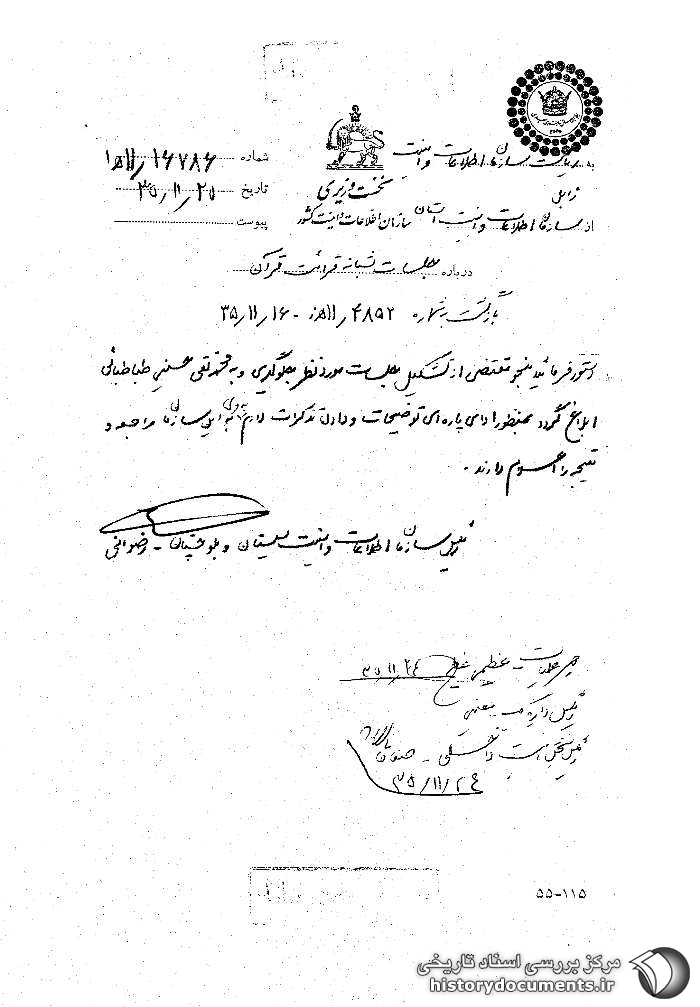 شماره ۱۶۷۸۶/۱۱ه‍۱
به ریاست سازمان اطلاعات و امنیت زابل
نخست وزیری
تاریخ ۳۵/۱۱/۲۵
از سازمان اطلاعات و امنیت استان
سازمان اطلاعات و امنیت کشور
پیوست
درباره جلسات شبانه قرائت قرآن
بازگشت بشماره ۴۸۵۲/۱۱ه‍ز - ۳۵/۱۱/۱۶
دستور فرمائید بنحو مقتضی از تشکیل جلسات مورد نظر جلوگیری و به محمد تقی حسینی طباطبائی
ابلاغ گردد بمنظور ادای پاره‌ای توضیحات و دادن تذکرات لازم به این سازمان مراجعه و
نتیجه را اعلام دارند .
رئیس سازمان اطلاعات و امنیت سیستان و بلوچستان - رضوانی
۳۵/۱۱/۲۴
رئیس
رئیس بخش امنیت داخلی -
۳۵/۱۱/۲۴
۵۵-۱۱۵
مرکز بررسی اسناد تاریخی
historydocuments.ir